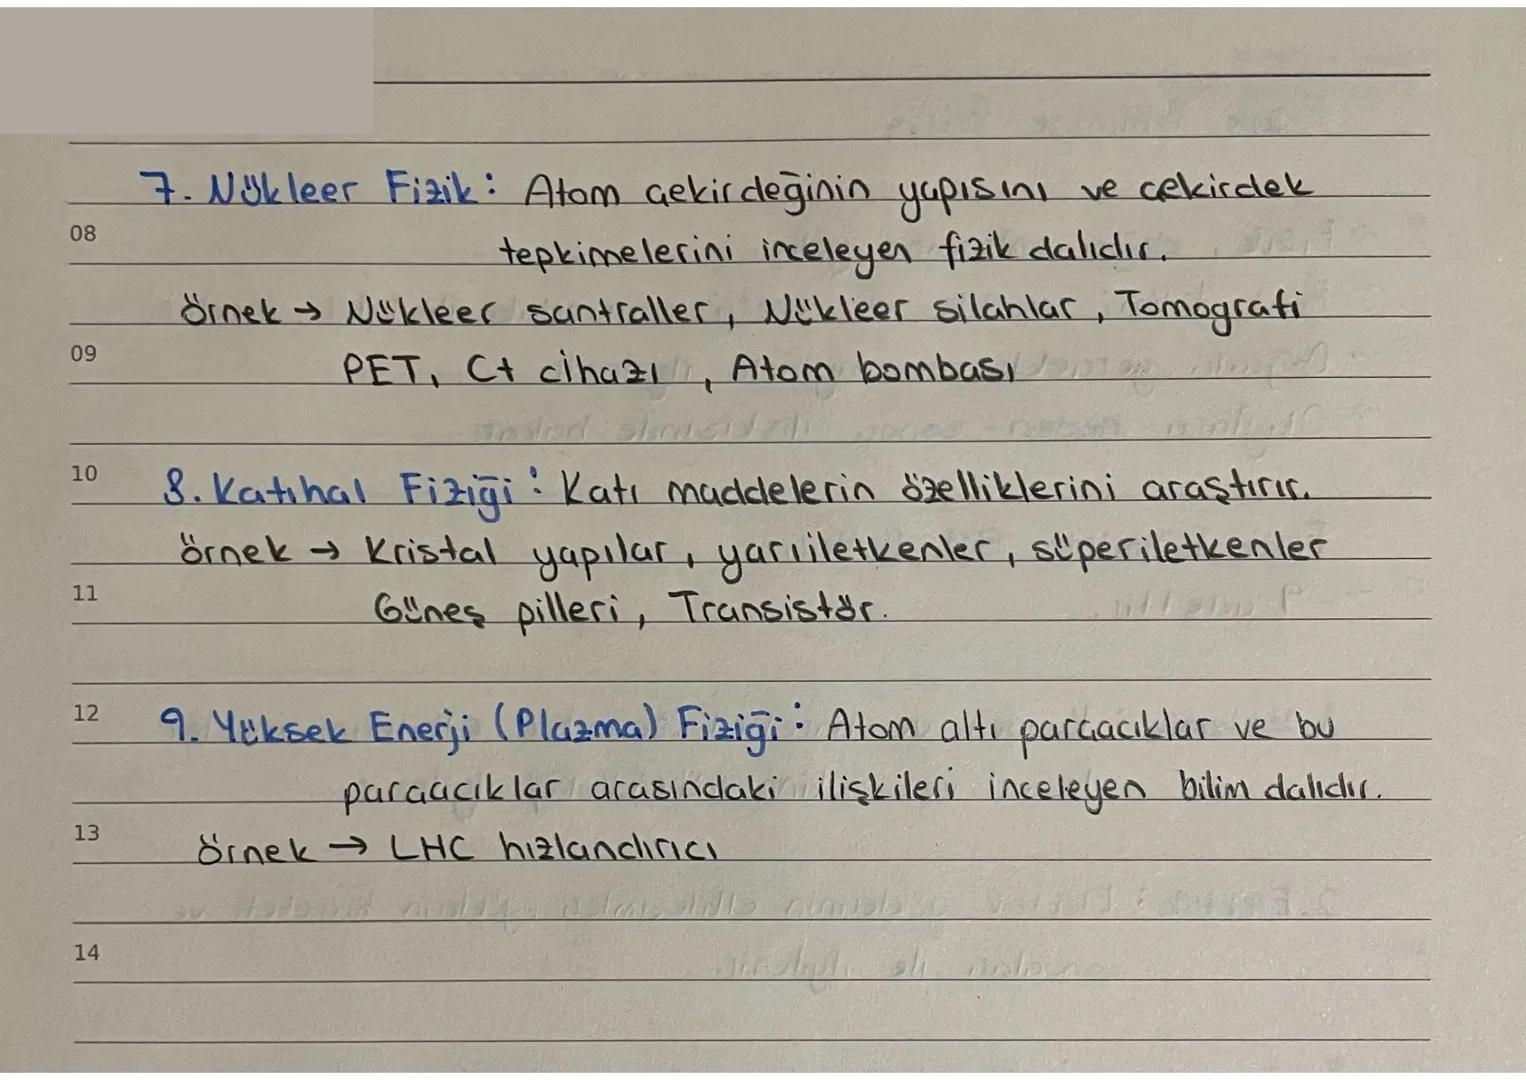 7. Nükleer Fizik: Atom çekirdeğinin yapısını ve çekirdek
08
tepkimelerini inceleyen fizik dalıdır.
örnek → Nükleer santraller, Nükleer silahlar, Tomografi
09
PET, Ct cihazı, Atom bombası
10
8. Katıhal Fiziği: Katı maddelerin özelliklerini araştırır.
örnek → Kristal yapılar, yarıiletkenler, süperiletkenler
11
Güneş pilleri, Transistör.
12
9. Yüksek Enerji (Plazma) Fiziği: Atom altı parçacıklar ve bu
parçacıklar arasındaki ilişkileri inceleyen bilim dalıdır.
13
örnek → LHC hızlandırıcı
14